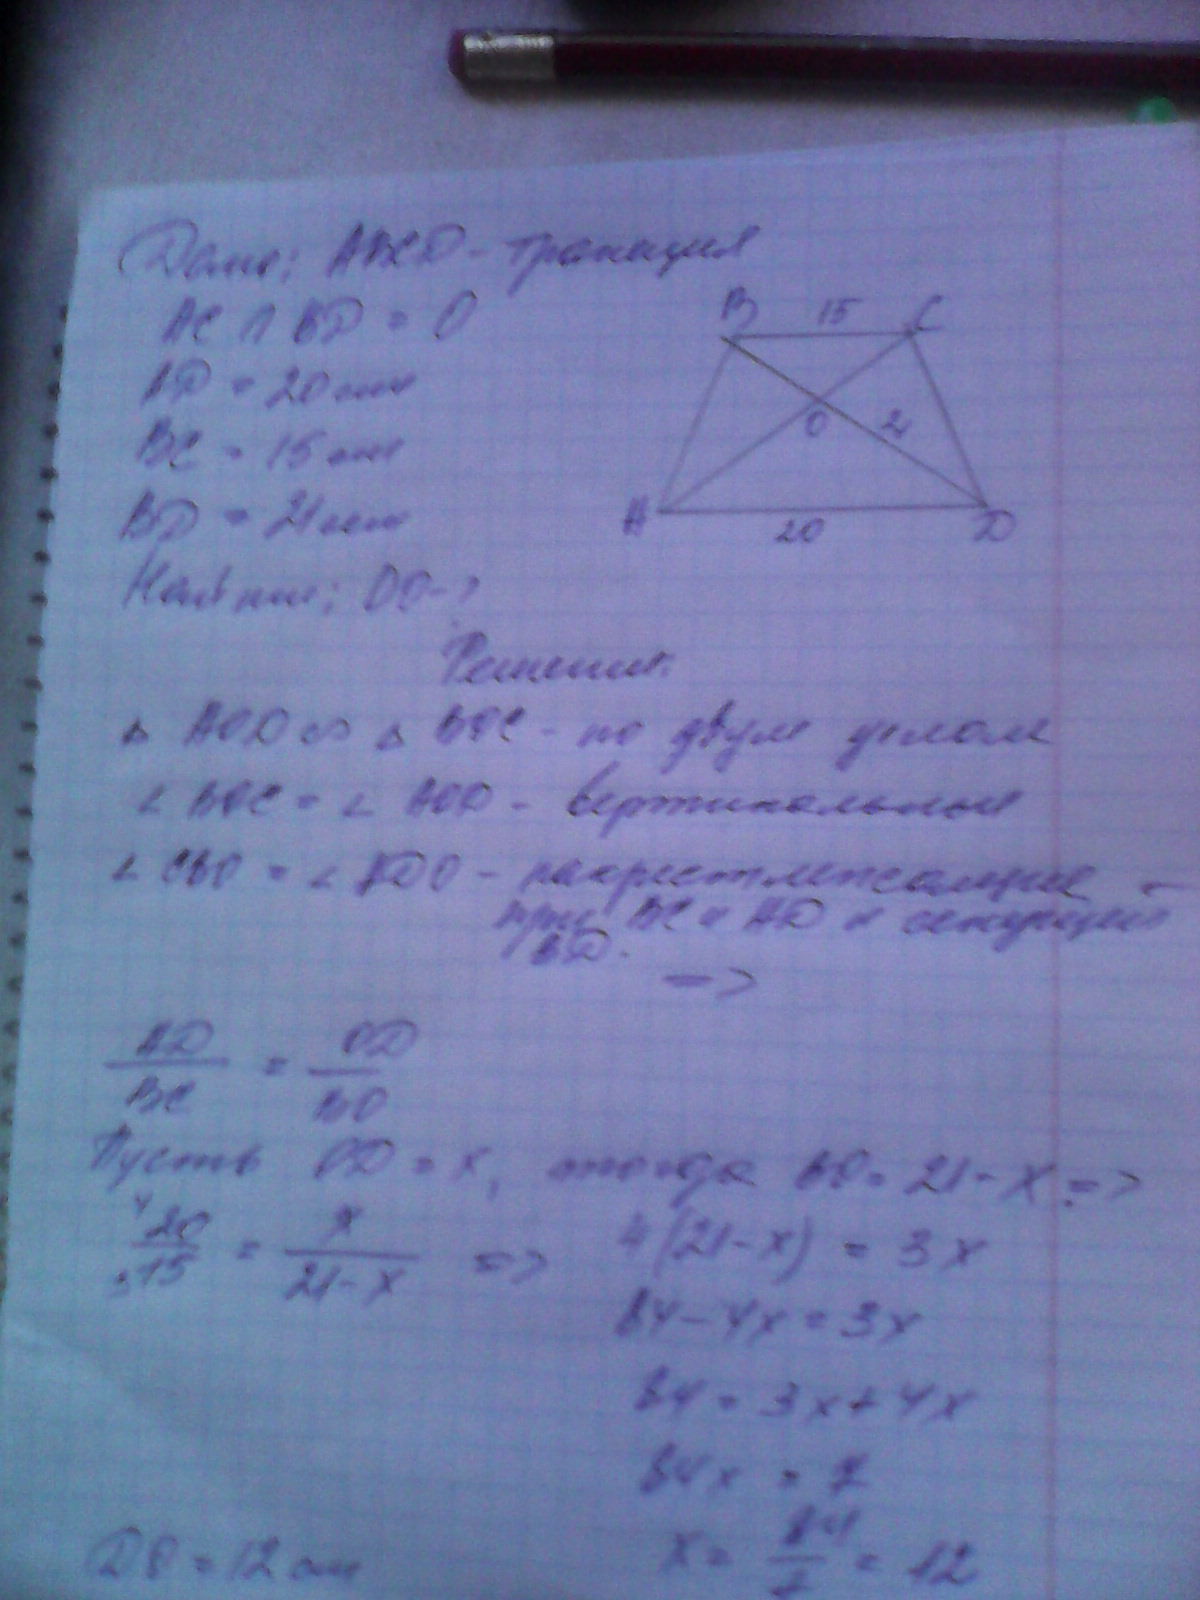 Дано: ABCD - трапеция
AC ∩ BD = O
AD = 20 см
BC = 15 см
BD = 21 см
Найти: DO-?
B 15 C
O 2
A 20 D
Решение.
△ AOD ∞ △ BOC - по двум углам
∠ BOC = ∠ AOD - вертикальные
∠ CBO = ∠ ADO - накрестлежащие
при BC и AD и секущей
BD.
=>
AD/BC = OD/BO
Пусть OD = x, тогда BO = 21 - x =>
4 20/3 15 = x/21-x => 4(21-x) = 3x
84 - 4x = 3x
84 = 3x + 4x
84x = 7
x = 84/7 = 12
DO = 12 см